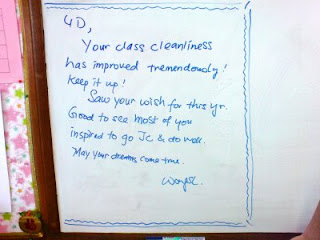 4D,
Your class cleanliness
has improved tremendously!
Keep it up!
Saw your wish for this yr.
Good to see most of you
inspired to go Jc & do well.
May your dreams come true.